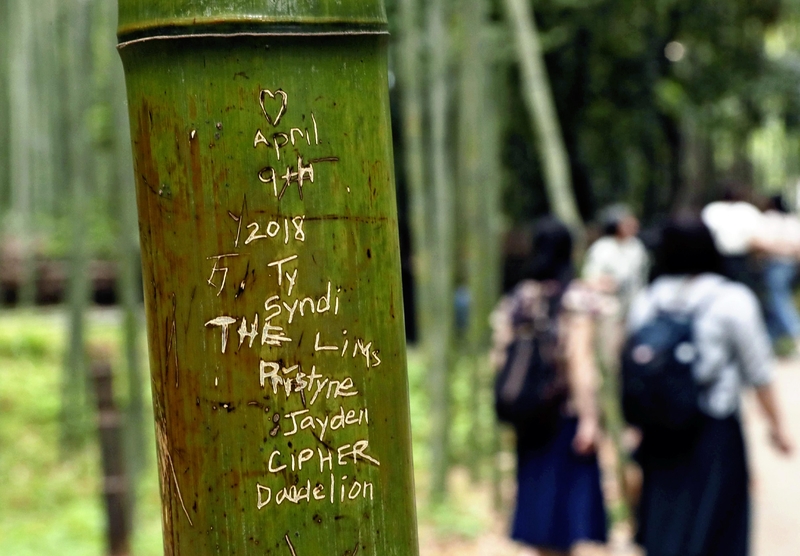 ♡
April
9th
2018
Ty
Syndi
THE Lims
Jayden
CIPHER
Dandelion